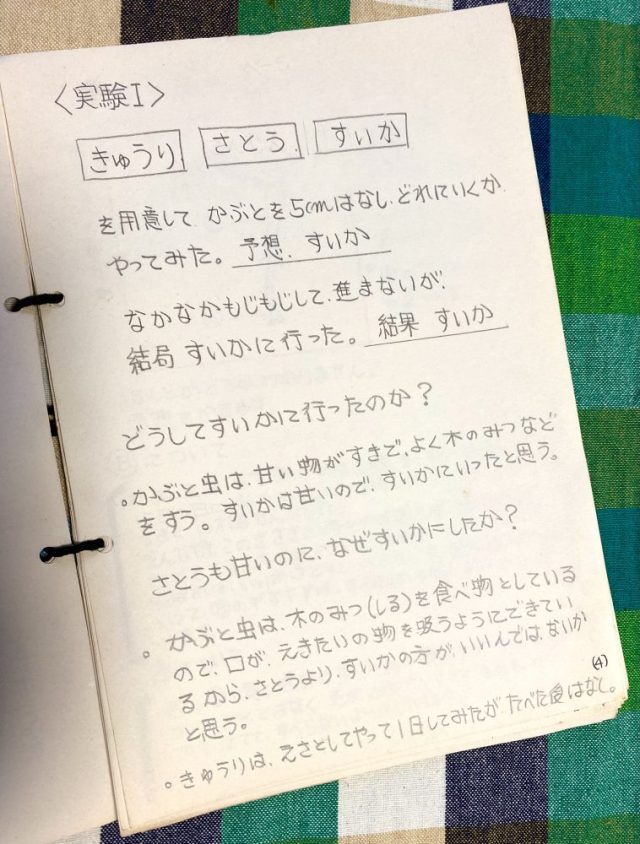 〈実験I〉
きゅうり さとう. すいか
を用意して、かぶとを5cmはなし、どれにいくか、
やってみた。 予想. すいか
なかなかもじもじして、進まないが、
結局 すいかに行った。 結果 すいか
どうしてすいかに行ったのか？
。かぶと虫は、甘い物がすきで、よく木のみつなど
をすう。すいかは甘いので、すいかにいったと思う。
さとうも甘いのに、なぜすいかにしたか？
。かぶと虫は、木のみつ(しる)を食べ物としている
ので、口が、えきたいの物を吸うようにできてい
るから、さとうより、すいかの方が、いいんでは、ないか
と思う。
(4)
。きゅうりは、えさとしてやって1日してみたが、たべた後はなし。